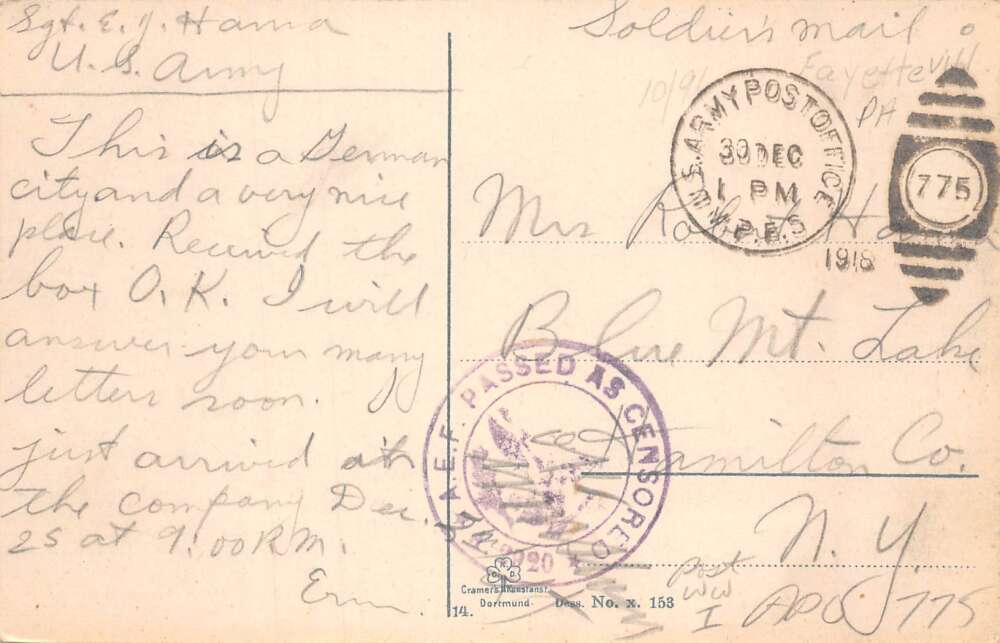 Sgt. E. J. Hanna
U.S. Army
This is a German
city and a very nice
place. Received the
box O.K. I will
answer your many
letters soon.
just arrived at
the company Dec.
25 at 9.00 P.M.
Soldier's mail
Fayetteville
PA
U.S. ARMY POST OFFICE
30 DEC
1 PM
M.P.E.S
1918
775
Mrs Robert
Blue Mt. Lake
Hamilton Co.
N. Y.
A.E.F. PASSED AS CENSORED
Cramers Kunstanst.
Dortmund.
14.
Dess. No. x. 153
Post
WW
I APO 775